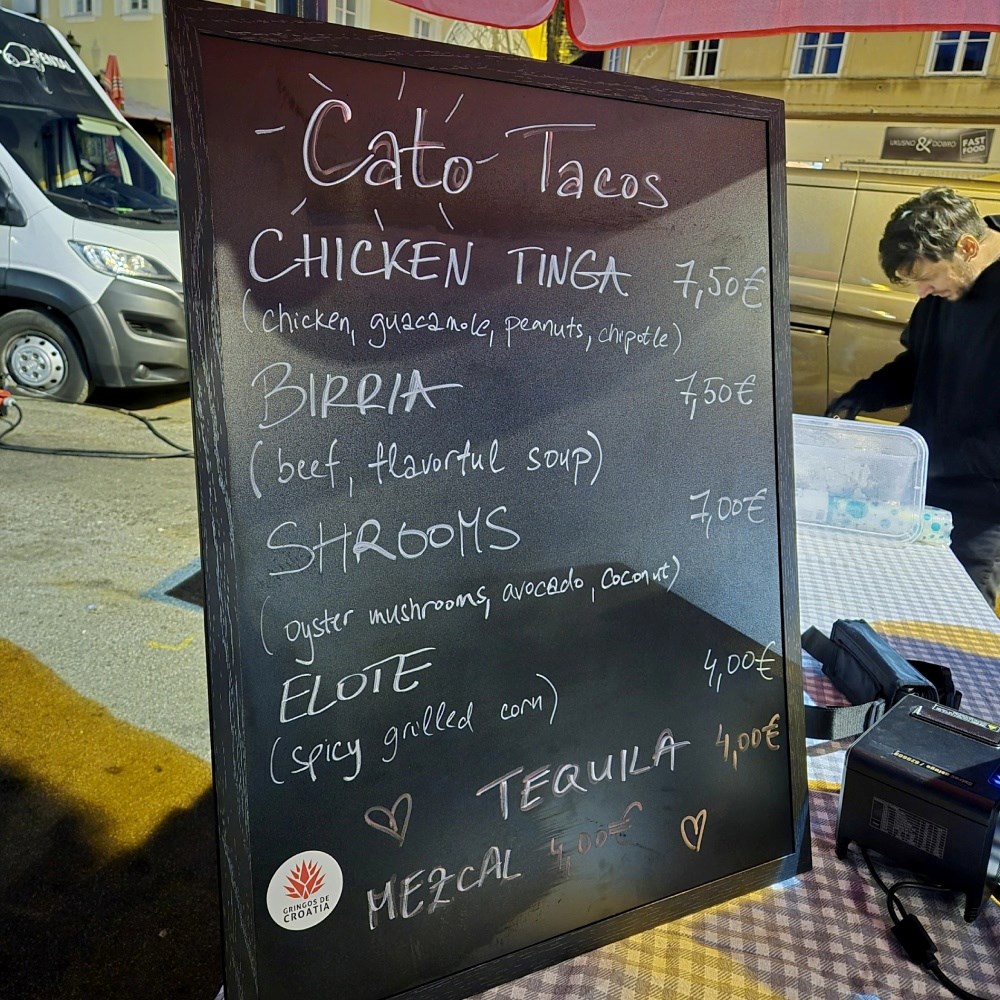 Cato Tacos
CHICKEN TINGA 7,50€
(chicken, guacamole, peanuts, chipotle)
BIRRIA 7,50€
(beef, flavorful soup)
SHROOMS 7,00€
(oyster mushrooms, avocado, coconut)
ELOTE 4,00€
(spicy grilled corn)
TEQUILA 4,00€
MEZCAL 4,00€
GRINGOS DE
CROATIA
UKUSNO & DOBRO FAST
FOOD